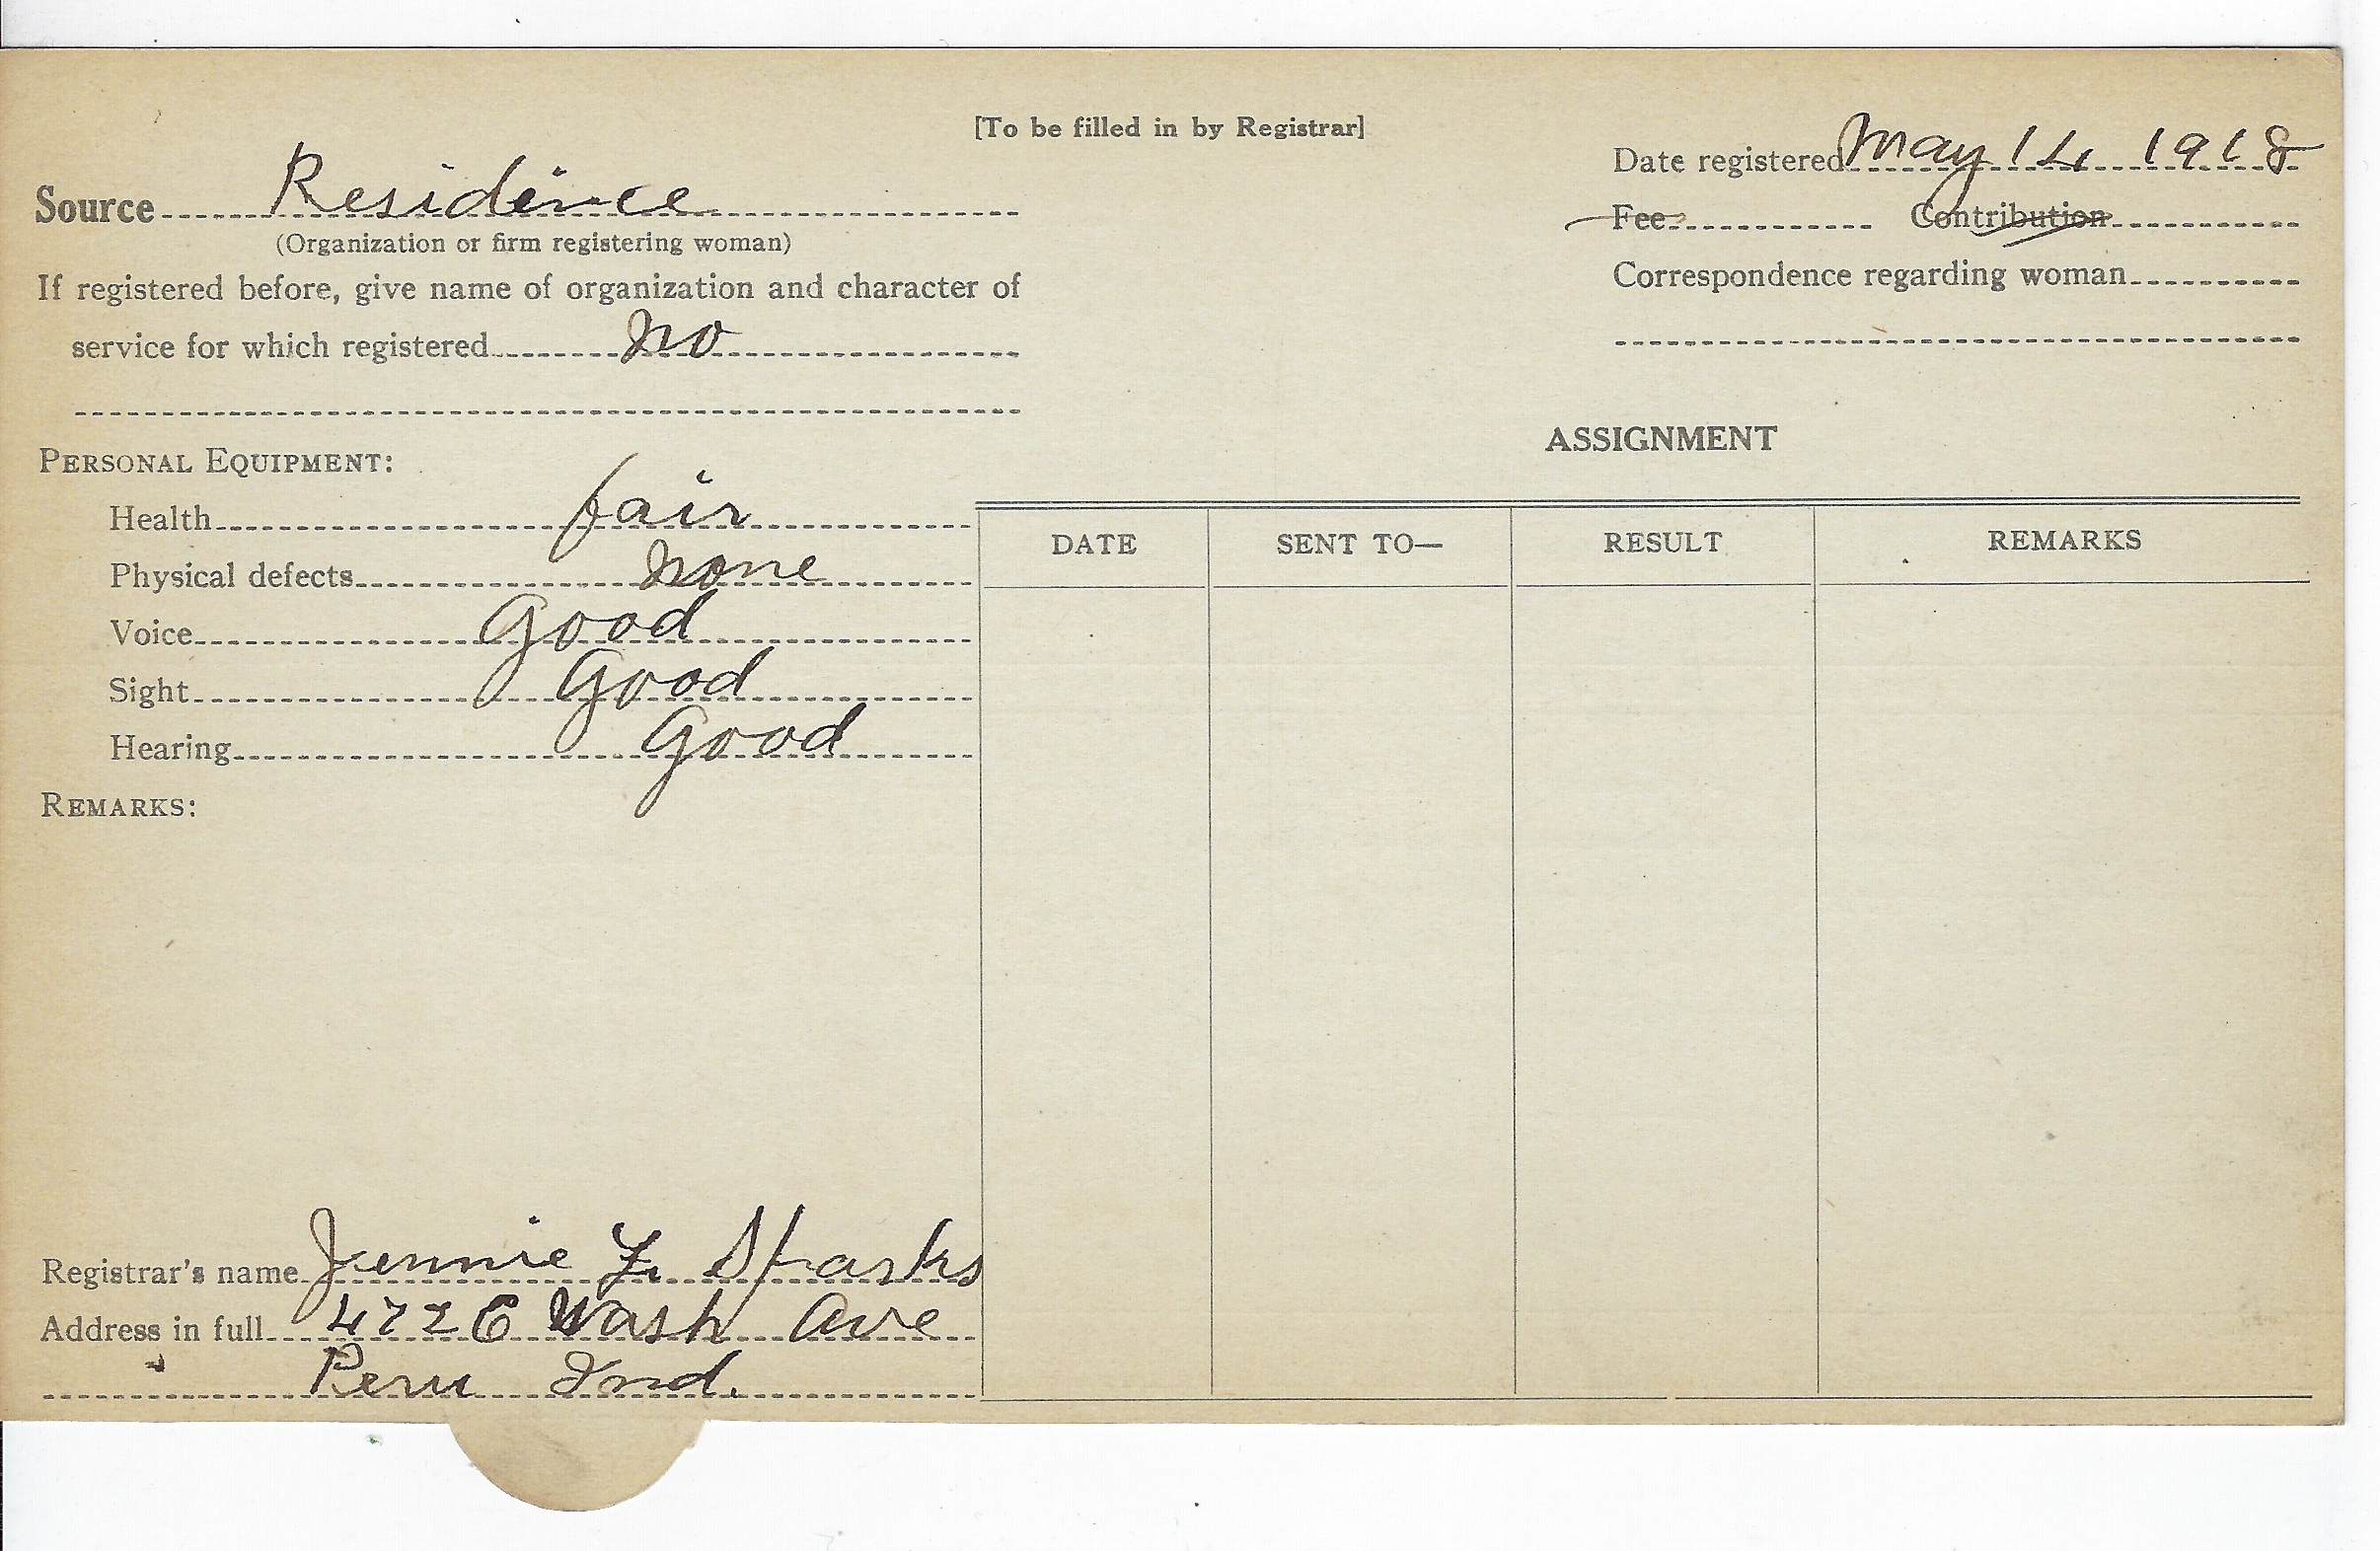 [To be filled in by Registrar]
Date registered May 14 1918
Source Residence
Fee Contribution
(Organization or firm registering woman)
If registered before, give name of organization and character of
Correspondence regarding woman
service for which registered no
ASSIGNMENT
PERSONAL EQUIPMENT:
Health fair
DATE SENT TO— RESULT REMARKS
Physical defects none
Voice Good
Sight Good
Hearing Good
REMARKS:
Registrar's name Jennie F. Sparks
Address in full 472 E Wash Ave
Peru Ind.